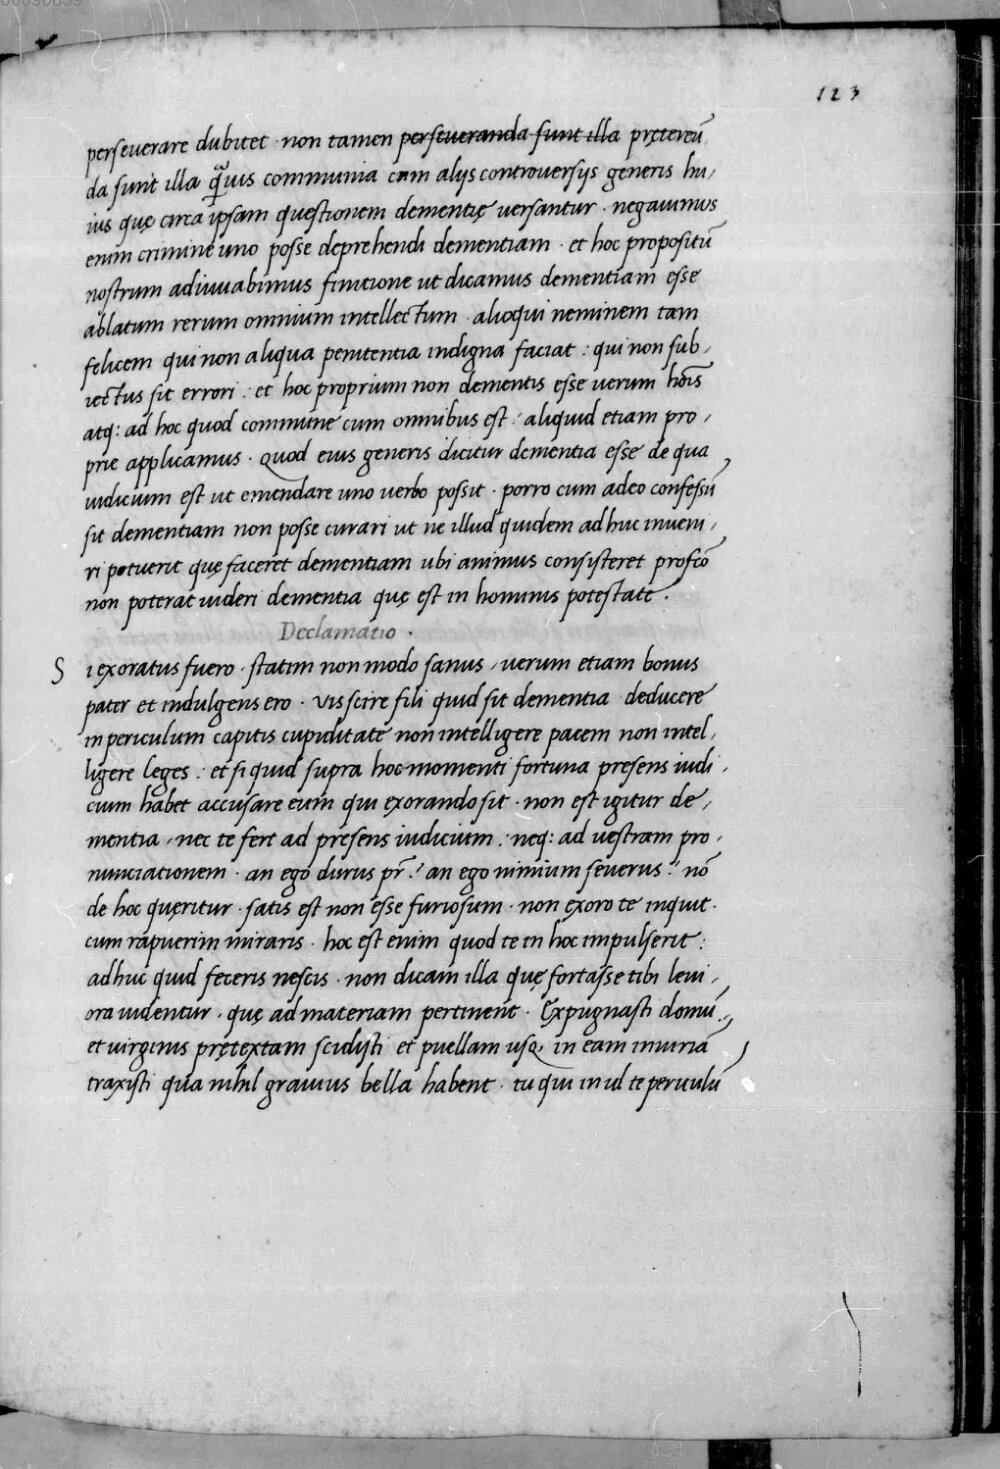 123
perseverare dubitet · non tamen perseveranda sunt illa pręterēū
da sunt illa q̄uis communia cum alijs controversijs generis hu,
ius quę circa ipsam questionem dementię versantur · negavimus
enim crimine uno posse deprehendi dementiam · et hoc propositū
nostrum adiuvabimus finitione ut dicamus dementiam esse
ablatum rerum omnium intellectum · alioqui neminem tam
felicem qui non aliqua penitentia indigna faciat : qui non sub,
iectus sit errori : et hoc proprium non dementis esse verum hoīs
atq: ad hoc quod commune cum omnibus est : aliquid etiam pro,
prie applicamus · Quod eius generis dicitur dementia esse de qua
iudicium est ut emendare uno verbo possit · porro cum adeo confessū
sit dementiam non posse curari ut ne illud quidem adhuc inveni,
ri potuerit quę faceret dementiam ubi animus consisteret profcō
non poterat videri dementia quę est in hominis potestate ·
Declamatio ·
S i exoratus fuero · statim non modo sanus, verum etiam bonus
pater et indulgens ero · vis scire fili quid sit dementia deducere
in periculum capitis cupiditate non intelligere pacem non intel,
ligere leges : et si quid supra hoc momenti fortuna presens iudi,
cium habet accusare eum qui exorando sit · non est igitur de,
mentia, nec te fert ad presens iudicium : neq: ad vestram pro,
nunciationem · an ego durus pr̄ ? an ego nimium severus ? nō
de hoc quęritur · satis est non esse furiosum · non exoro te inquit ·
cum rapuerim miraris · hoc est enim quod te in hoc impulserit :
adhuc quid feceris nescis · non dicam illa quę fortasse tibi levi,
ora videntur · quę ad materiam pertinent · Expugnasti domū,
et virginis prętextam scidisti et puellam usq, in eam iniuriā
traxisti qua nihil gravius bella habent · tu qui in id te periculū